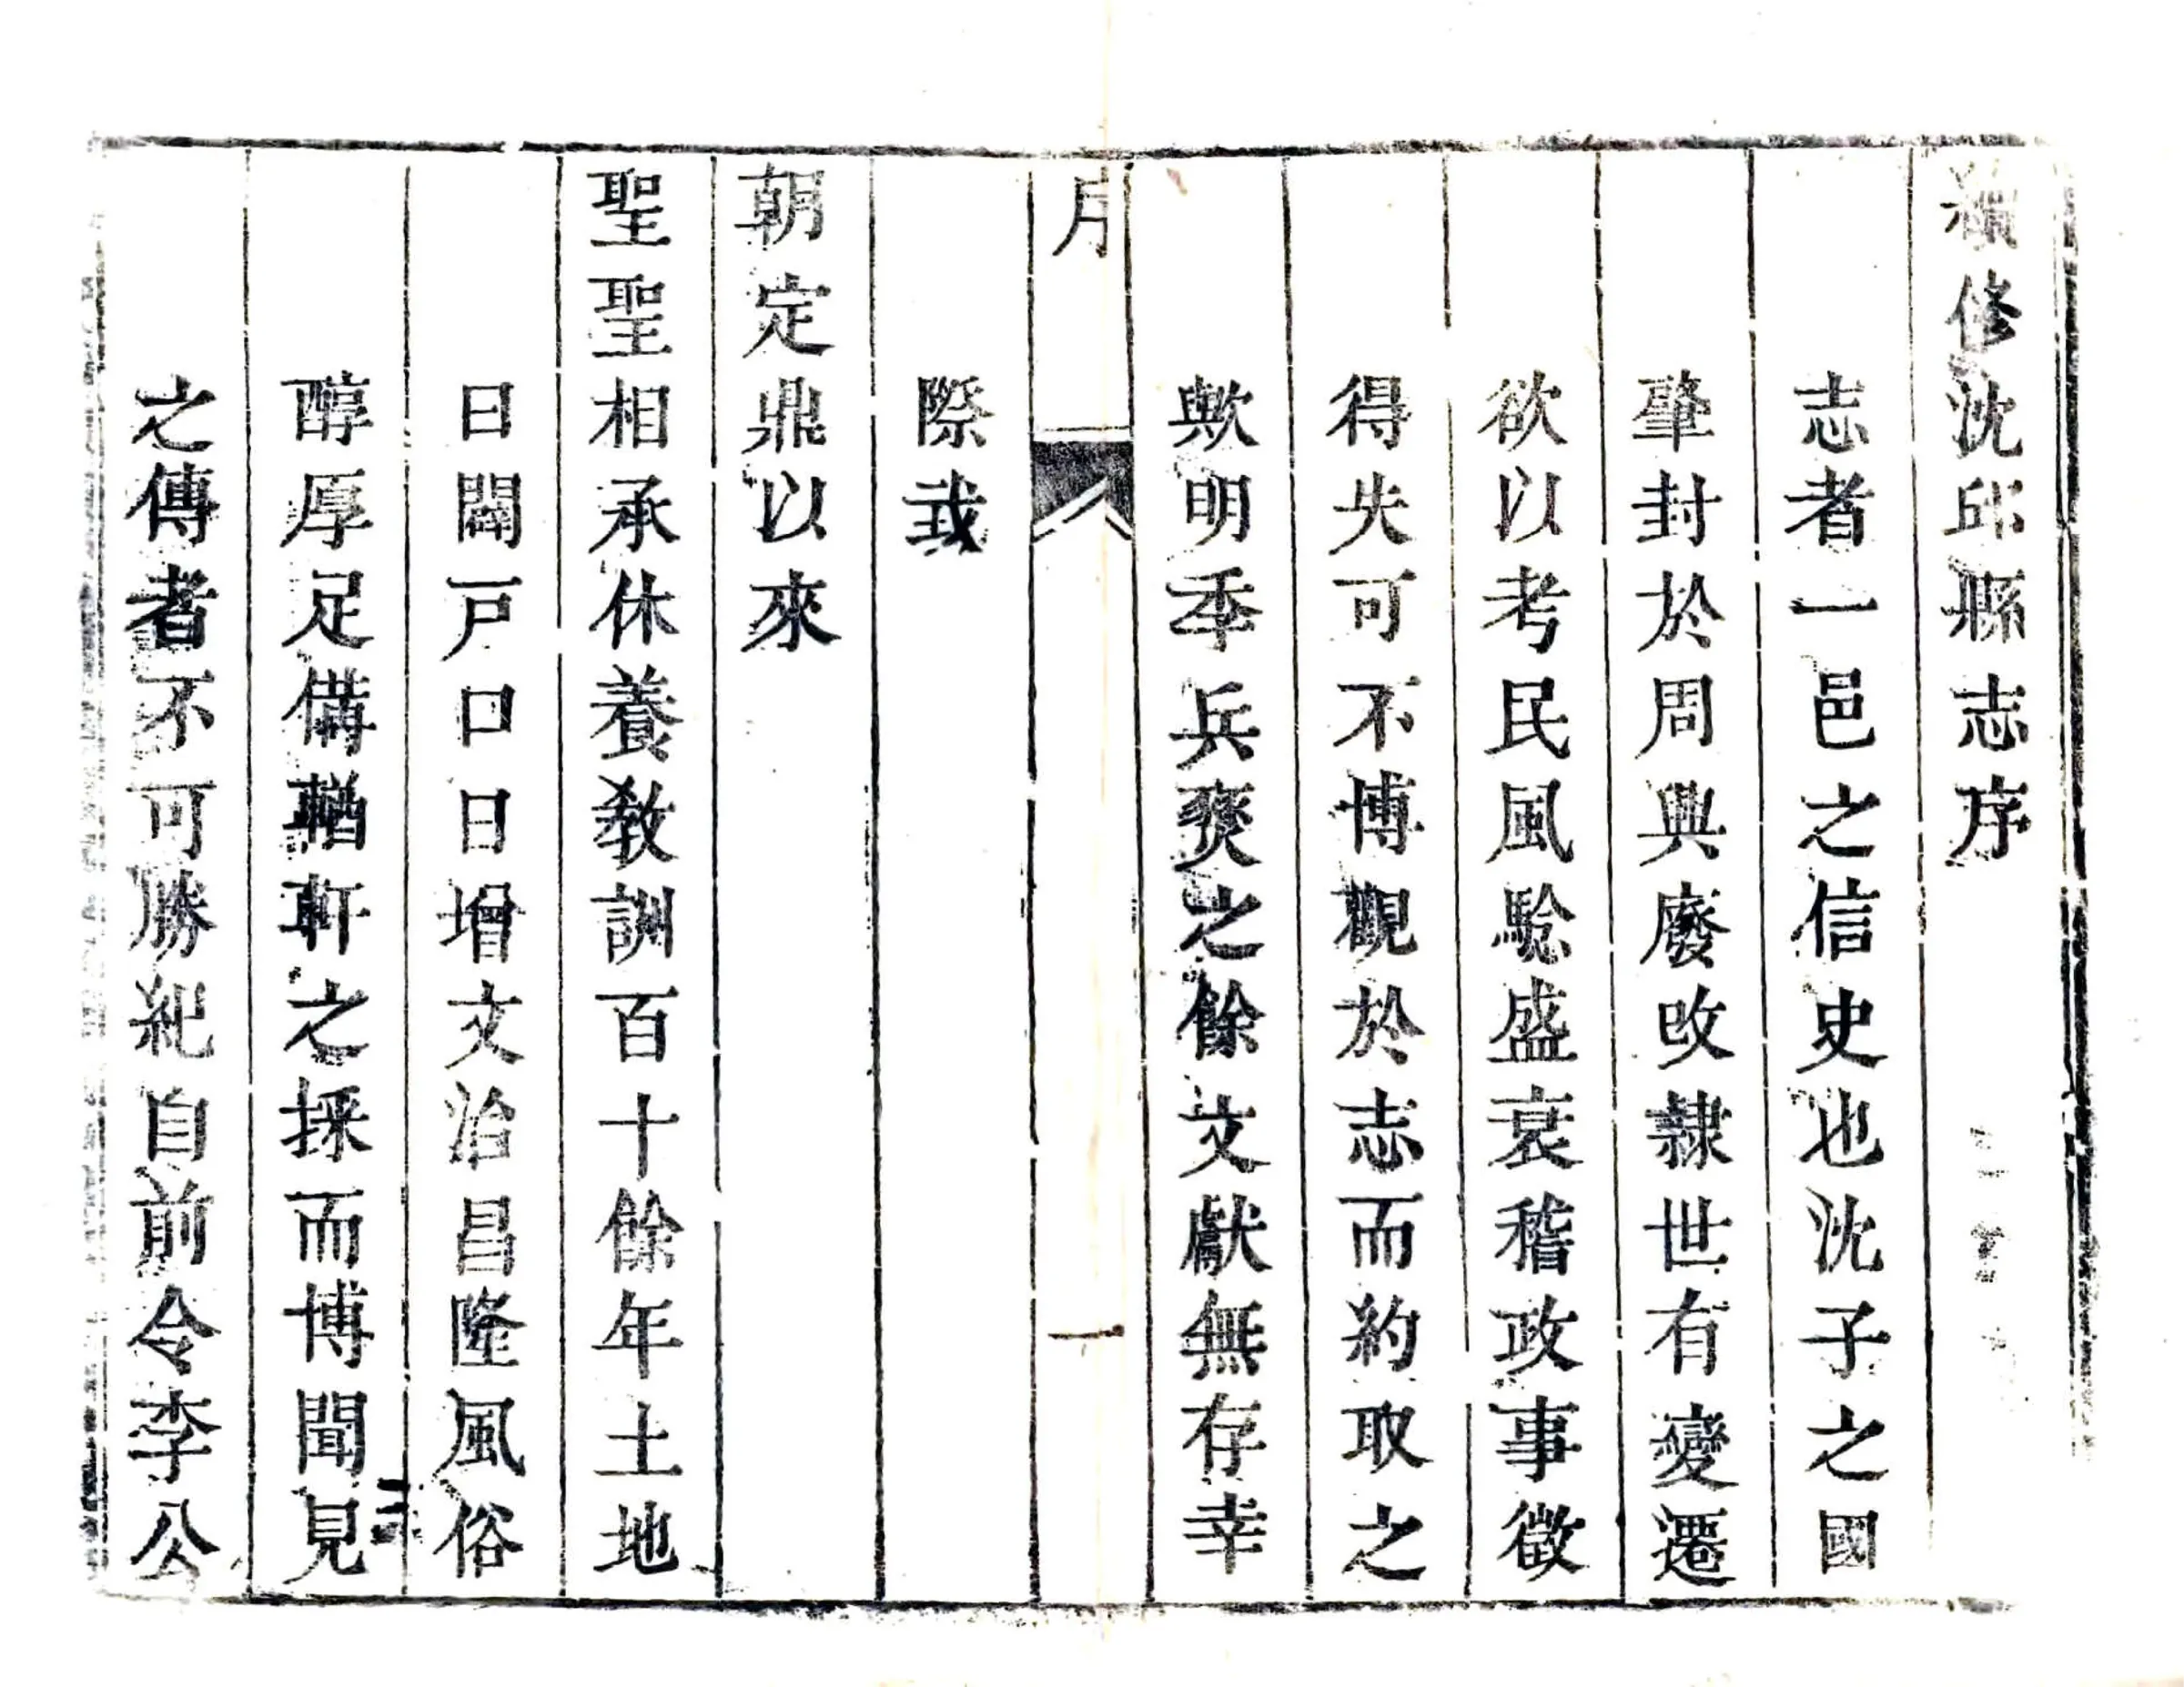 續修沈邱縣志序
志者一邑之信史也沈子之國
肇封於周興廢攺隷世有變遷
欲以考民風驗盛衰稽政事徵
得失可不博觀於志而約取之
歟明季兵燹之餘文獻無存幸
序
一
際我
朝定鼎以來
聖聖相承休養教訓百十餘年土地
日闢戸口日增文治昌隆風俗
醇厚足備輶軒之採而博聞見
之傳者不可勝紀自前令李公